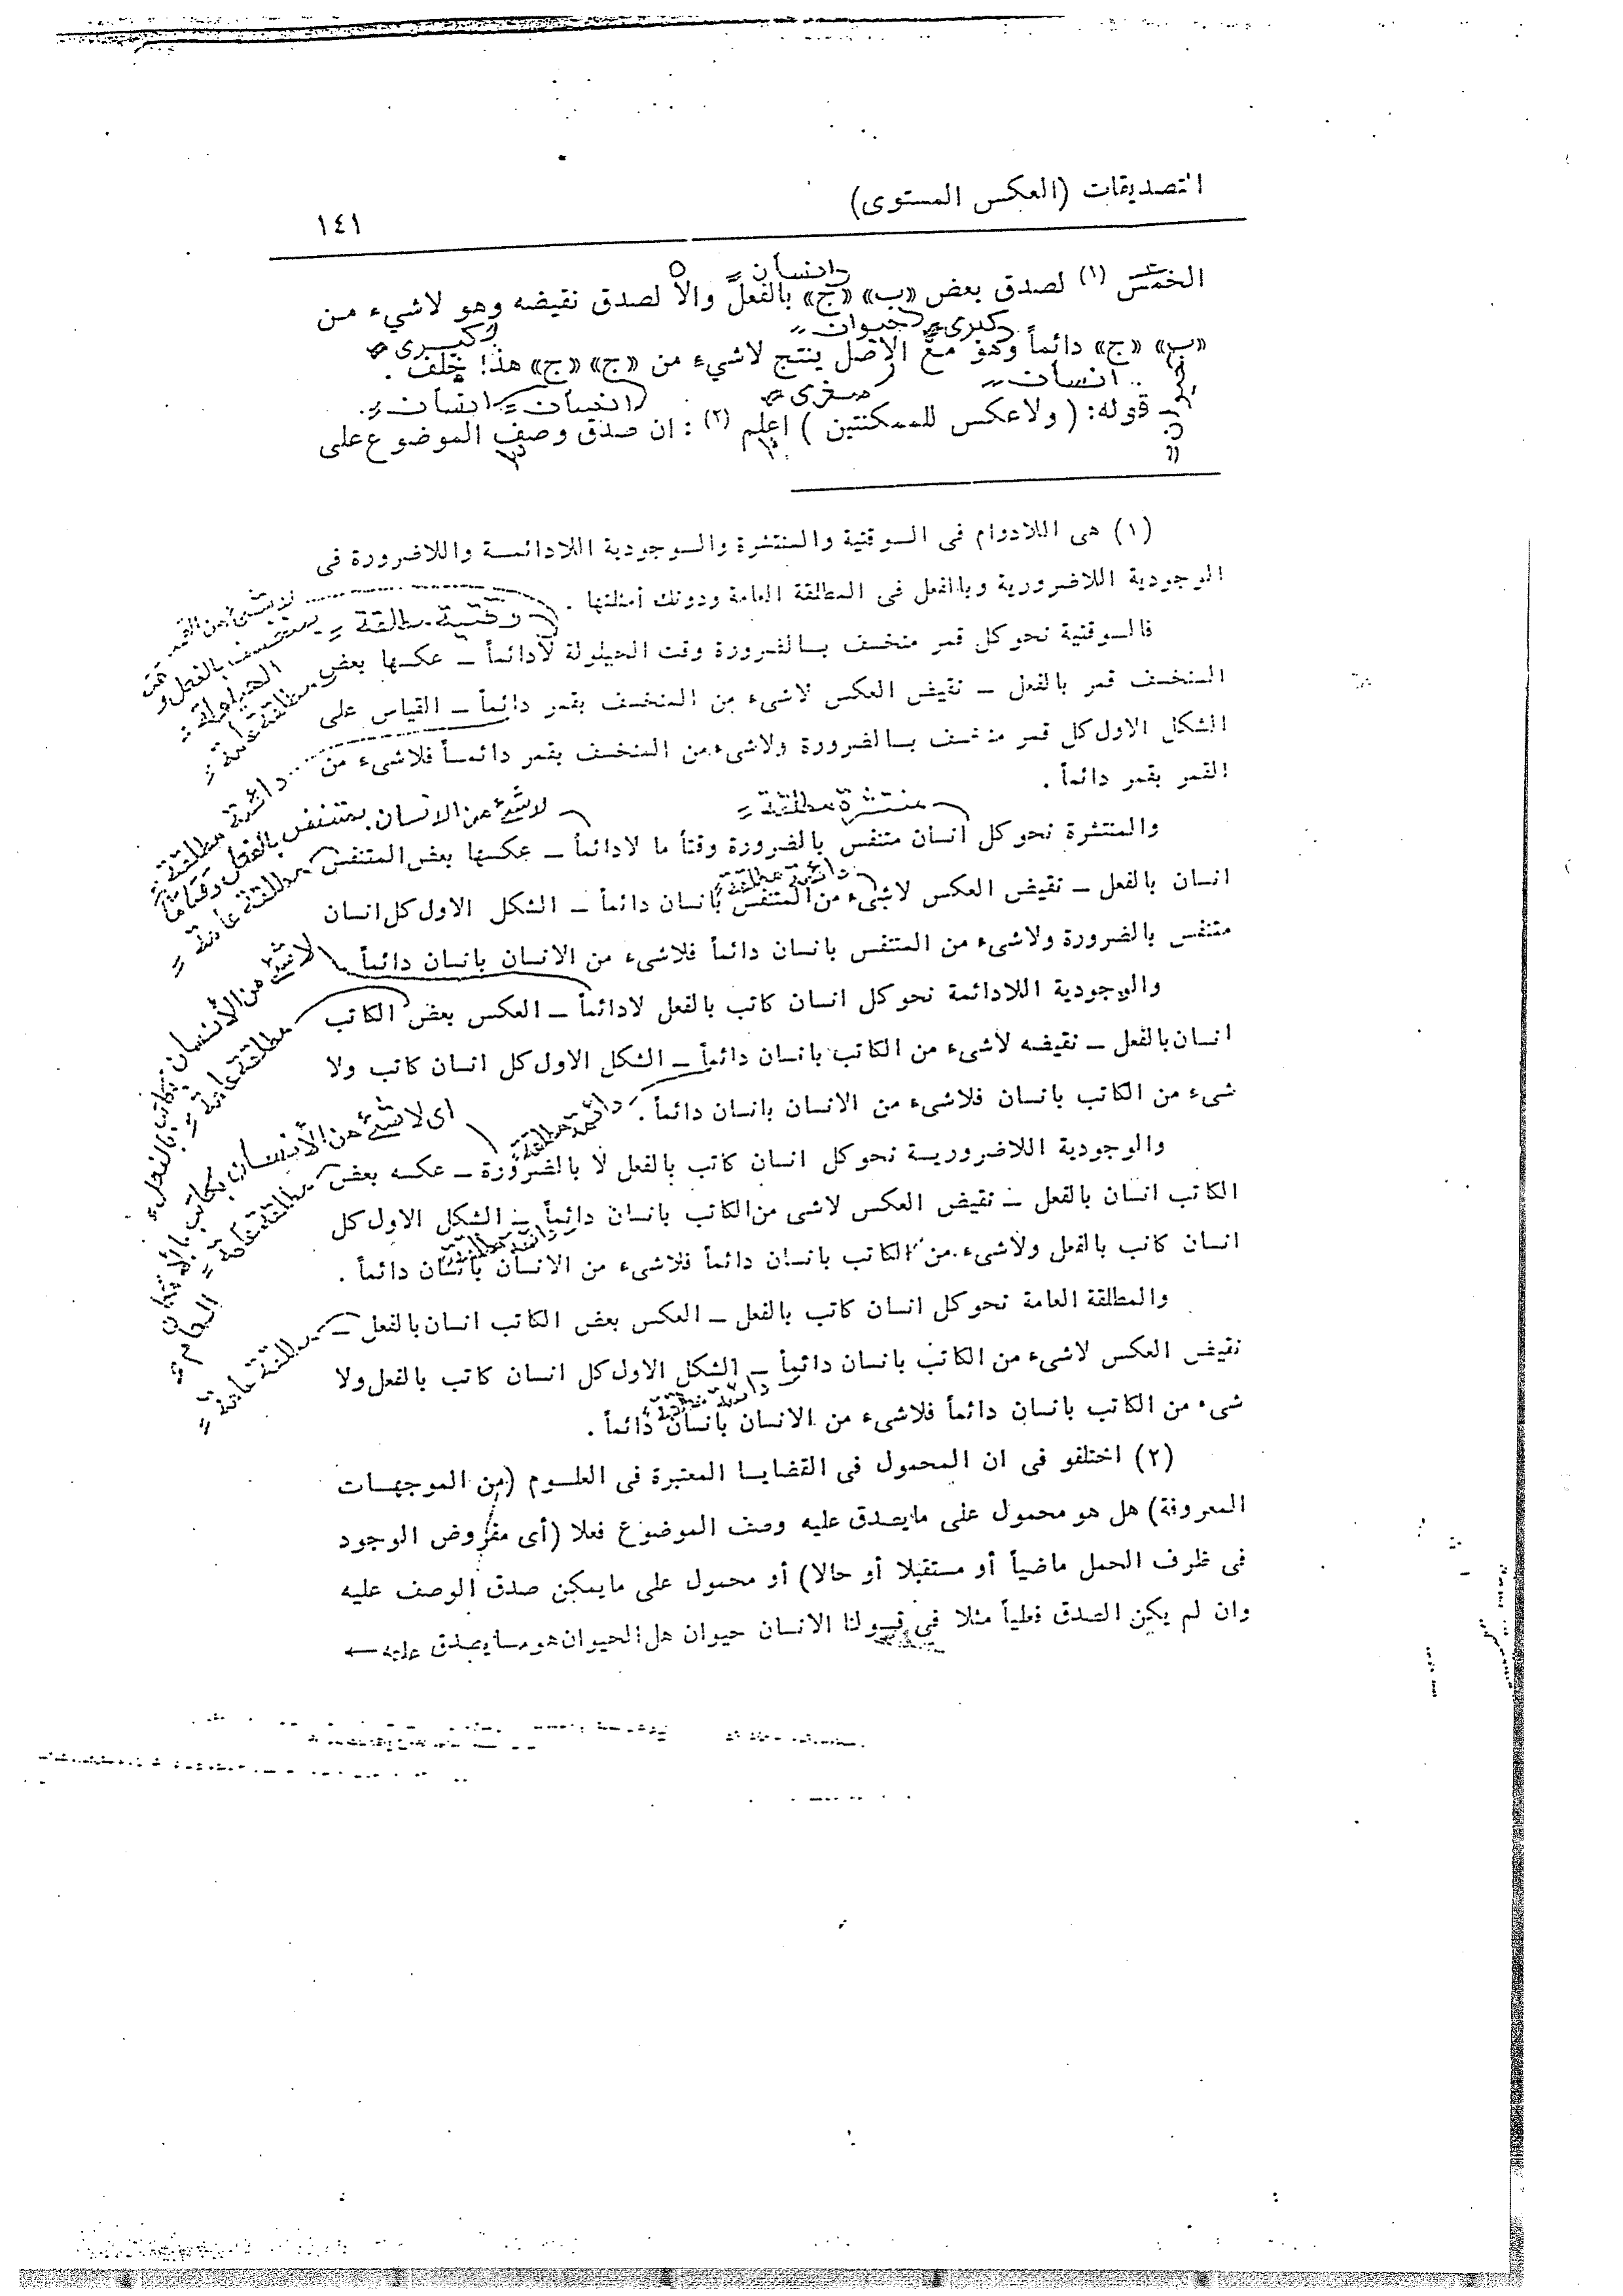 التصديقات (العكس المستوى)
١٤١
الخمس (١) لصدق بعض «ب» «ج» بالفعل والا لصدق نقيضه وهو لاشيء من
«ب» «ج» دائماً وهو مع الاصل ينتج لاشيء من «ج» «ج» هذا خلف .
قوله: ( ولاعكس للممكنتين ) اعلم (٢) : ان صدق وصف الموضوع على
انسان
حيوان
كبرى
كبرى
انسان
صغرى
انسان
انسان
(١) هى اللادوام فى الوقتية والمنتشرة والوجودية اللادائمة واللاضرورة فى
الوجودية اللاضرورية وبالفعل فى المطلقة العامة ودونك أمثلتها .
وقتية مطلقة
فالوقتية نحو كل قمر منخسف بالضرورة وقت الحيلولة لادائماً ــ عكسها بعض
المنخسف قمر بالفعل ــ نقيض العكس لاشىء من المنخسف بقمر دائماً ــ القياس على
الشكل الاول كل قمر منخسف بالضرورة ولاشىء من المنخسف بقمر دائماً فلاشىء من
القمر بقمر دائماً .
مطلقة عامة
دائمة مطلقة
منتشرة مطلقة
لا شئ من الانسان بمتنفس بالفعل وقتا ما
والمنتشرة نحو كل انسان متنفس بالضرورة وقتاً ما لادائماً ــ عكسها بعض المتنفس
انسان بالفعل ــ نقيض العكس لاشىء من المتنفس بانسان دائماً ــ الشكل الاول كل انسان
متنفس بالضرورة ولاشىء من المتنفس بانسان دائماً فلاشىء من الانسان بانسان دائماً .
دائمة مطلقة
مطلقة عامة
لا شئ من الأنسان بكاتب بالفعل
والوجودية اللادائمة نحو كل انسان كاتب بالفعل لادائماً ــ العكس بعض الكاتب
انسان بالفعل ــ نقيضه لاشىء من الكاتب بانسان دائماً ــ الشكل الاول كل انسان كاتب ولا
شىء من الكاتب بانسان فلاشىء من الانسان بانسان دائماً .
مطلقة عامة
دائمة مطلقة
اى لا شئ من الأنسان بكاتب
والوجودية اللاضرورية نحو كل انسان كاتب بالفعل لا بالضرورة ــ عكسه بعض
الكاتب انسان بالفعل ــ نقيض العكس لاشى من الكاتب بانسان دائماً ــ الشكل الاول كل
انسان كاتب بالفعل ولاشىء من الكاتب بانسان دائماً فلاشىء من الانسان بانسان دائماً .
مطلقة عامة
والمطلقة العامة نحو كل انسان كاتب بالفعل ــ العكس بعض الكاتب انسان بالفعل ــ
نقيض العكس لاشىء من الكاتب بانسان دائماً ــ الشكل الاول كل انسان كاتب بالفعل ولا
شىء من الكاتب بانسان دائماً فلاشىء من الانسان بانسان دائماً .
مطلقة عامة
دائمة مطلقة
(٢) اختلفو فى ان المحمول فى القضايا المعتبرة فى العلوم (من الموجهات
المعروفة) هل هو محمول على مايصدق عليه وصف الموضوع فعلا (أى مفروض الوجود
فى ظرف الحمل ماضياً أو مستقبلا أو حالا) أو محمول على مايمكن صدق الوصف عليه
وان لم يكن الصدق فعلياً مثلا فى قولنا الانسان حيوان هل الحيوان هو مايصدق عليه ←